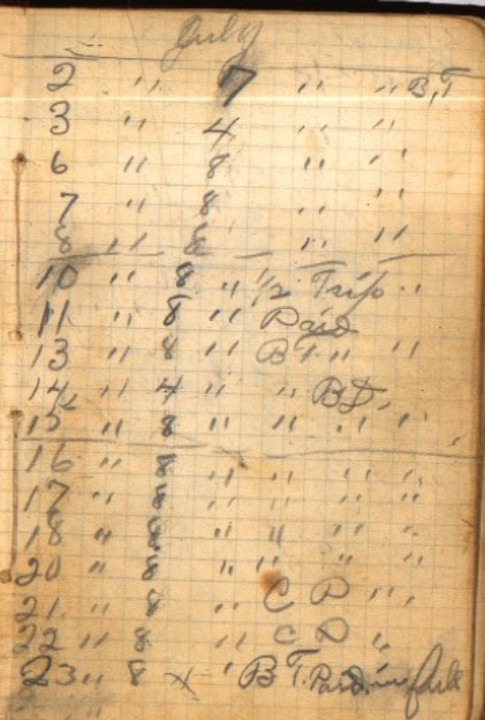 July
2 " 7 " " B,T
3 " 4 " "
6 " 8 " "
7 " 8 " "
8 " 8 " "
10 " 8 " 1/2 Trip "
11 " 8 " Paid
13 " 8 " B T " "
14 " 4 " " BD,
15 " 8 " " " "
16 " 8 " " " "
17 " 8 " " " "
18 " 8 " " " "
20 " 8 " " " "
21 " 8 " C D " "
22 " 8 " C D "
23 " 8 x " B T. Paid in full